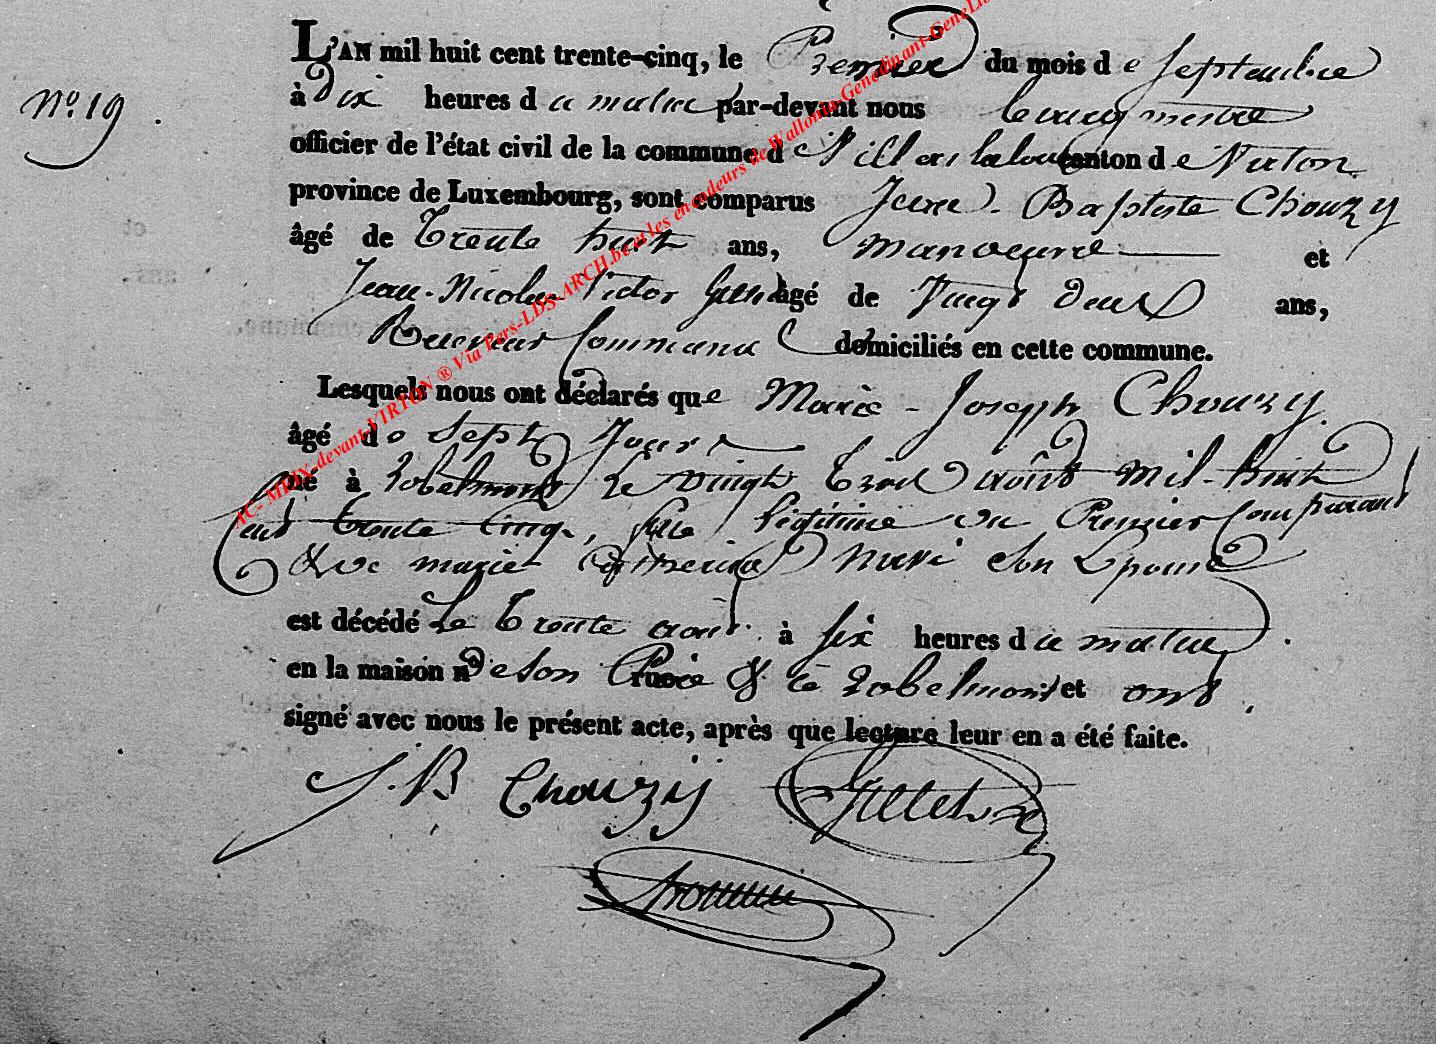 L'AN mil huit cent trente-cinq, le Premier du mois de Septembre
N.o 19.
à dix heures du matin par-devant nous Bourgmestre
officier de l'état civil de la commune de Villers la loue canton de Virton
province de Luxembourg, sont comparus Jean-Baptiste Chouzy
âgé de Trente huit ans, manoeuvre et
Jean-Nicolas Victor âgé de Vingt deux ans,
Receveur Communal domiciliés en cette commune.
Lesquels nous ont déclarés que Marie-Joseph Chouzy
âgé de Sept Jours
né à Robelmont le vingt trois août mil-huit
cent trente cinq, fille légitime du Premier Comparant
& de marie Catherine son Epouse
est décédé le trente aout à six heures du matin
en la maison de son Père & à Robelmont et ont
signé avec nous le présent acte, après que lecture leur en a été faite.
J. B Chouzy
AC- MDIX-devant VIRTON ® Via Pers-LDS-ARCH.be et les encodeurs de Wallonia-Genedinant-GeneLux